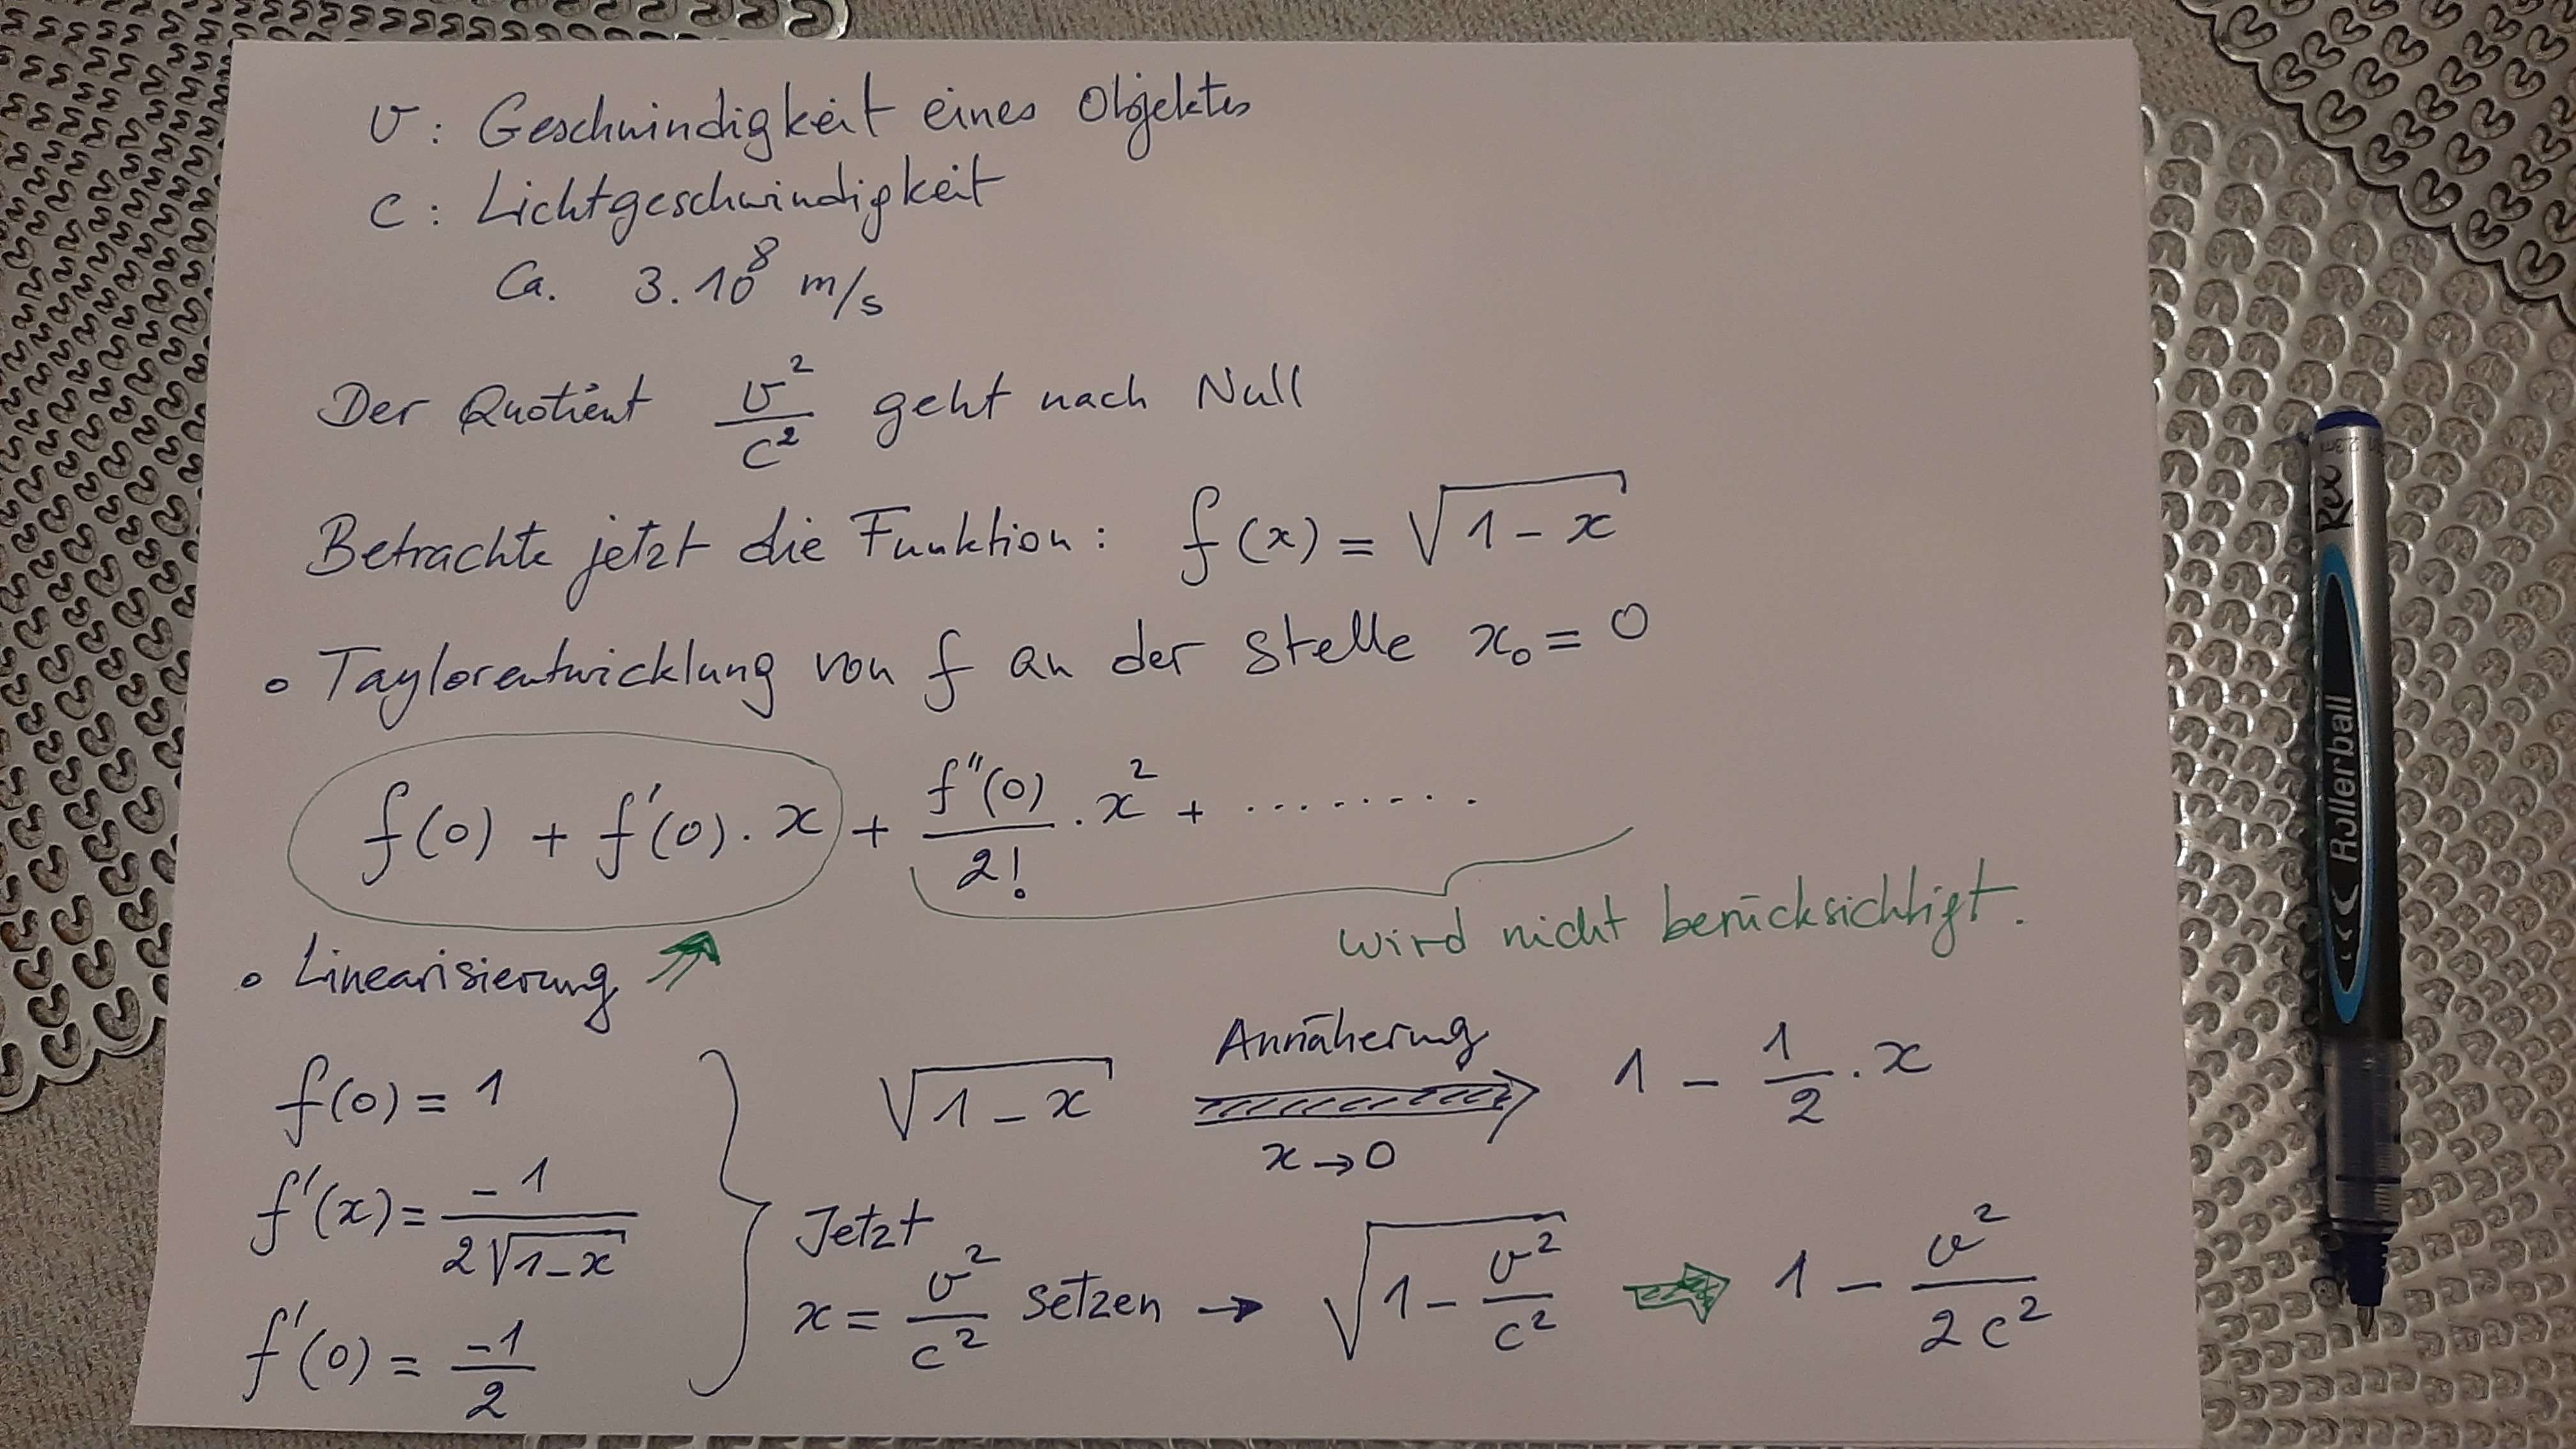 v : Geschwindigkeit eines Objektes
c : Lichtgeschwindigkeit
Ca. 3.10⁸ m/s
Der Quotient v²/c² geht nach Null
Betrachte jetzt die Funktion : f(x) = √(1-x)
• Taylorentwicklung von f an der Stelle x₀ = 0
f(0) + f'(0) · x + f''(0)/2! · x² + ........
wird nicht berücksichtigt.
• Linearisierung
f(0) = 1
f'(x) = -1/(2√(1-x))
f'(0) = -1/2
√(1-x) Annäherung x→0 1 - 1/2 · x
Jetzt
x = v²/c² setzen → √(1 - v²/c²) ⇒ 1 - v²/(2c²)
Rollerball